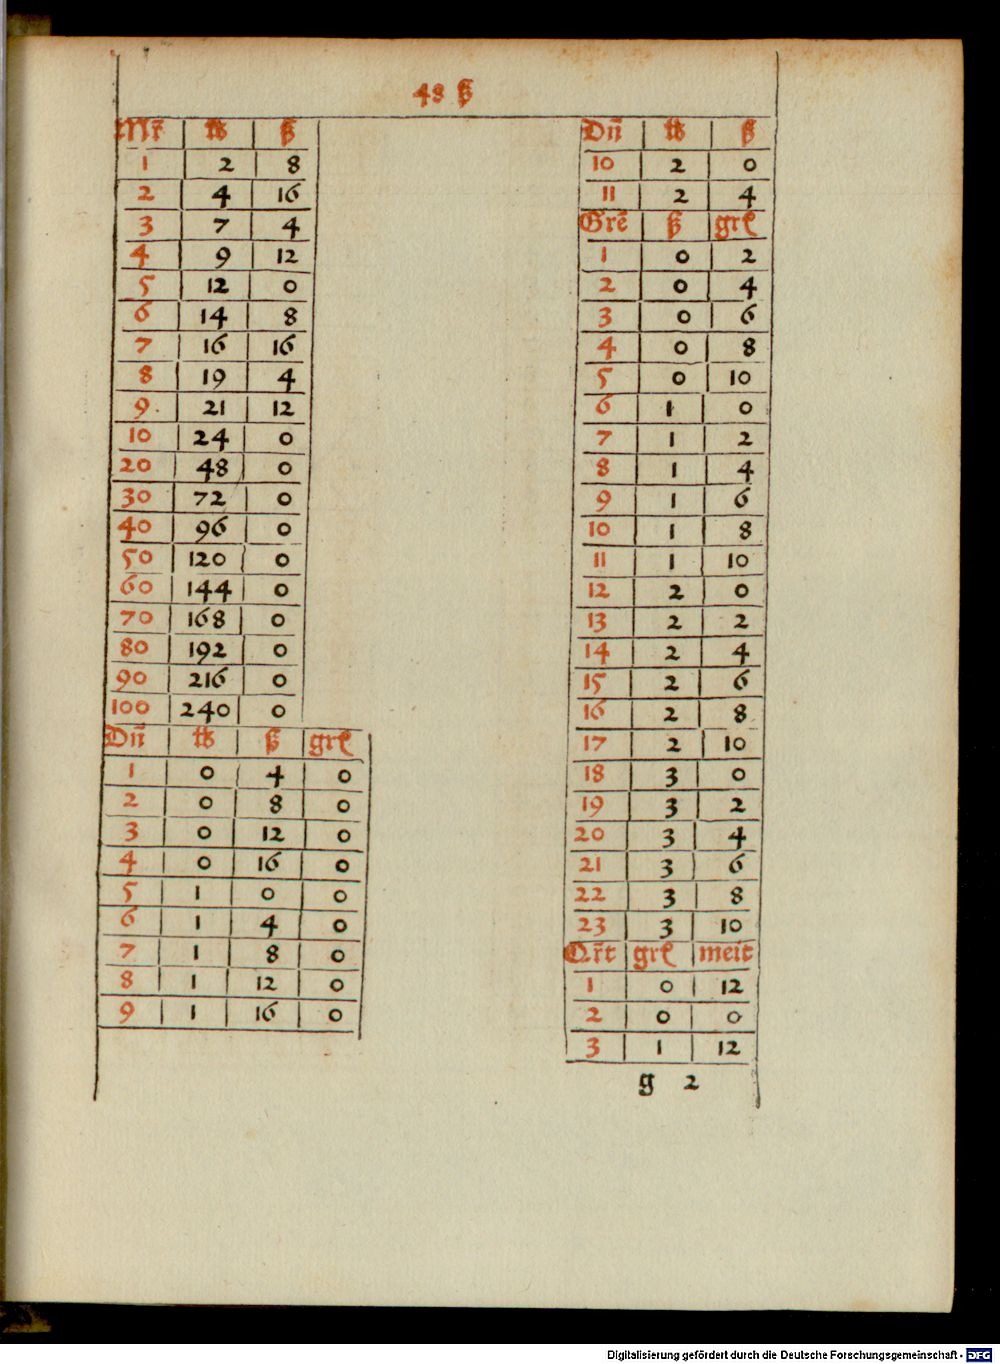 48 ß
Mr̄ ℔ ß
1 2 8
2 4 16
3 7 4
4 9 12
5 12 0
6 14 8
7 16 16
8 19 4
9· 21 12
10 24 0
20 48 0
30 72 0
40 96 0
50 120 0
60 144 0
70 168 0
80 192 0
90 216 0
100 240 0
Dn̄ ℔ ß grꝭ
1 0 4 0
2 0 8 0
3 0 12 0
4 0 16 0
5 1 0 0
6 1 4 0
7 1 8 0
8 1 12 0
9 1 16 0
Dn̄ ℔ ß
10 2 0
11 2 4
Grē ß grꝭ
1 0 2
2 0 4
3 0 6
4 0 8
5 0 10
6 1 0
7 1 2
8 1 4
9 1 6
10 1 8
11 1 10
12 2 0
13 2 2
14 2 4
15 2 6
16 2 8
17 2 10
18 3 0
19 3 2
20 3 4
21 3 6
22 3 8
23 3 10
Or̄t grꝭ meit
1 0 12
2 0 0
3 1 12
g 2
Digitalisierung gefördert durch die Deutsche Forschungsgemeinschaft - DFG